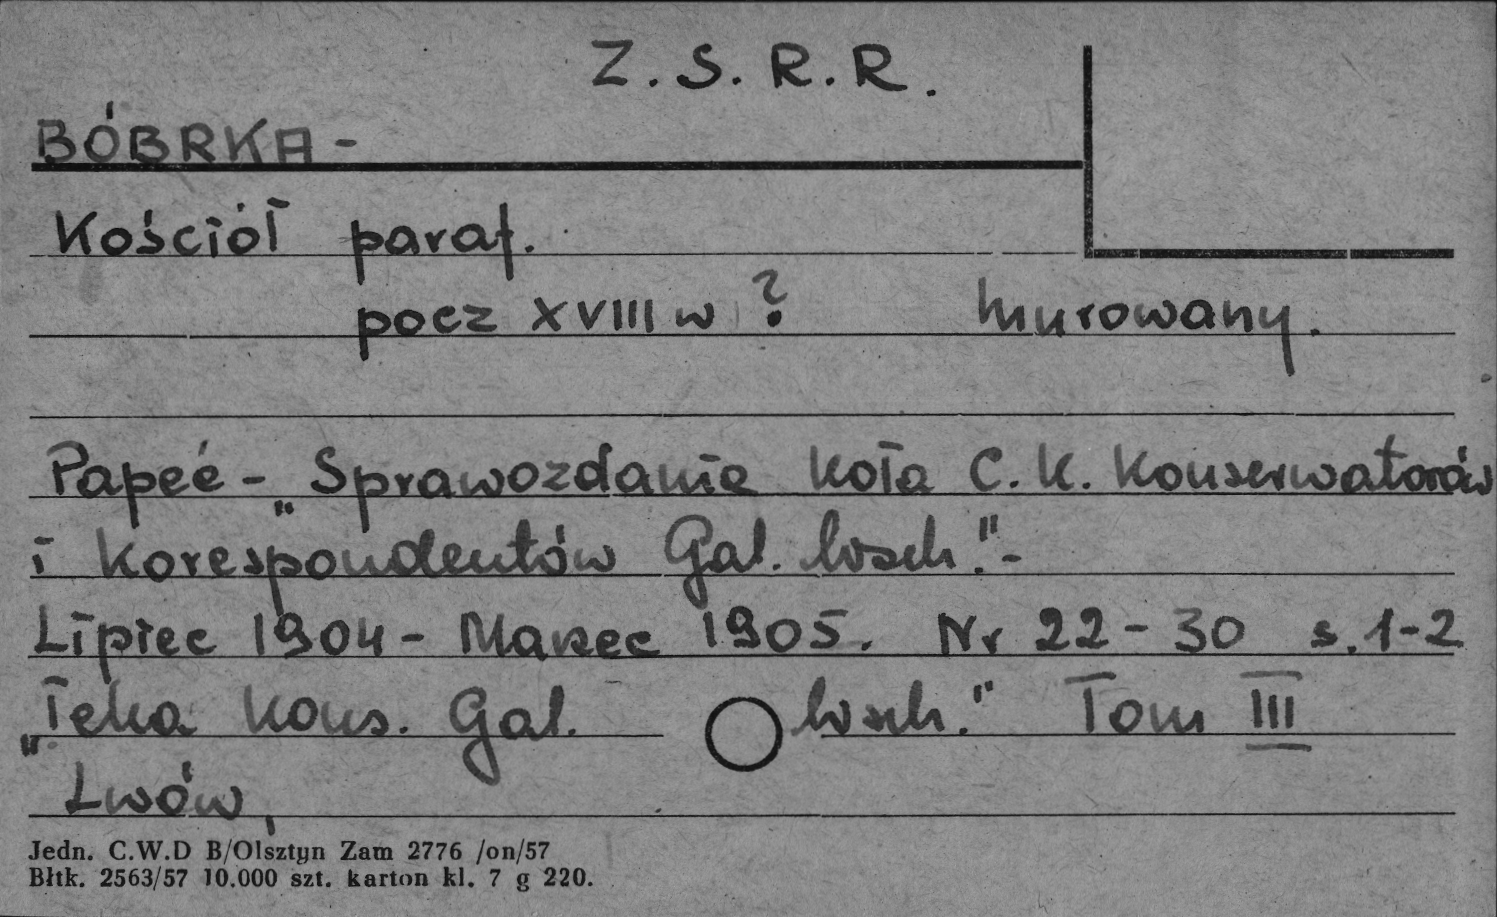 Z.S.R.R.
BÓBRKA -
Kościół paraf.
pocz XVIII w ? murowany.
Papée - „Sprawozdanie koła C.K. Konserwatorów
i Korespondentów Gal. Wsch." -
Lipiec 1904 - Marzec 1905. Nr 22 - 30 s. 1-2
„Teka Kons. Gal. Wsch." Tom III
Lwów,
Jedn. C.W.D B/Olsztyn Zam 2776 /on/57
Błtk. 2563/57 10.000 szt. karton kl. 7 g 220.